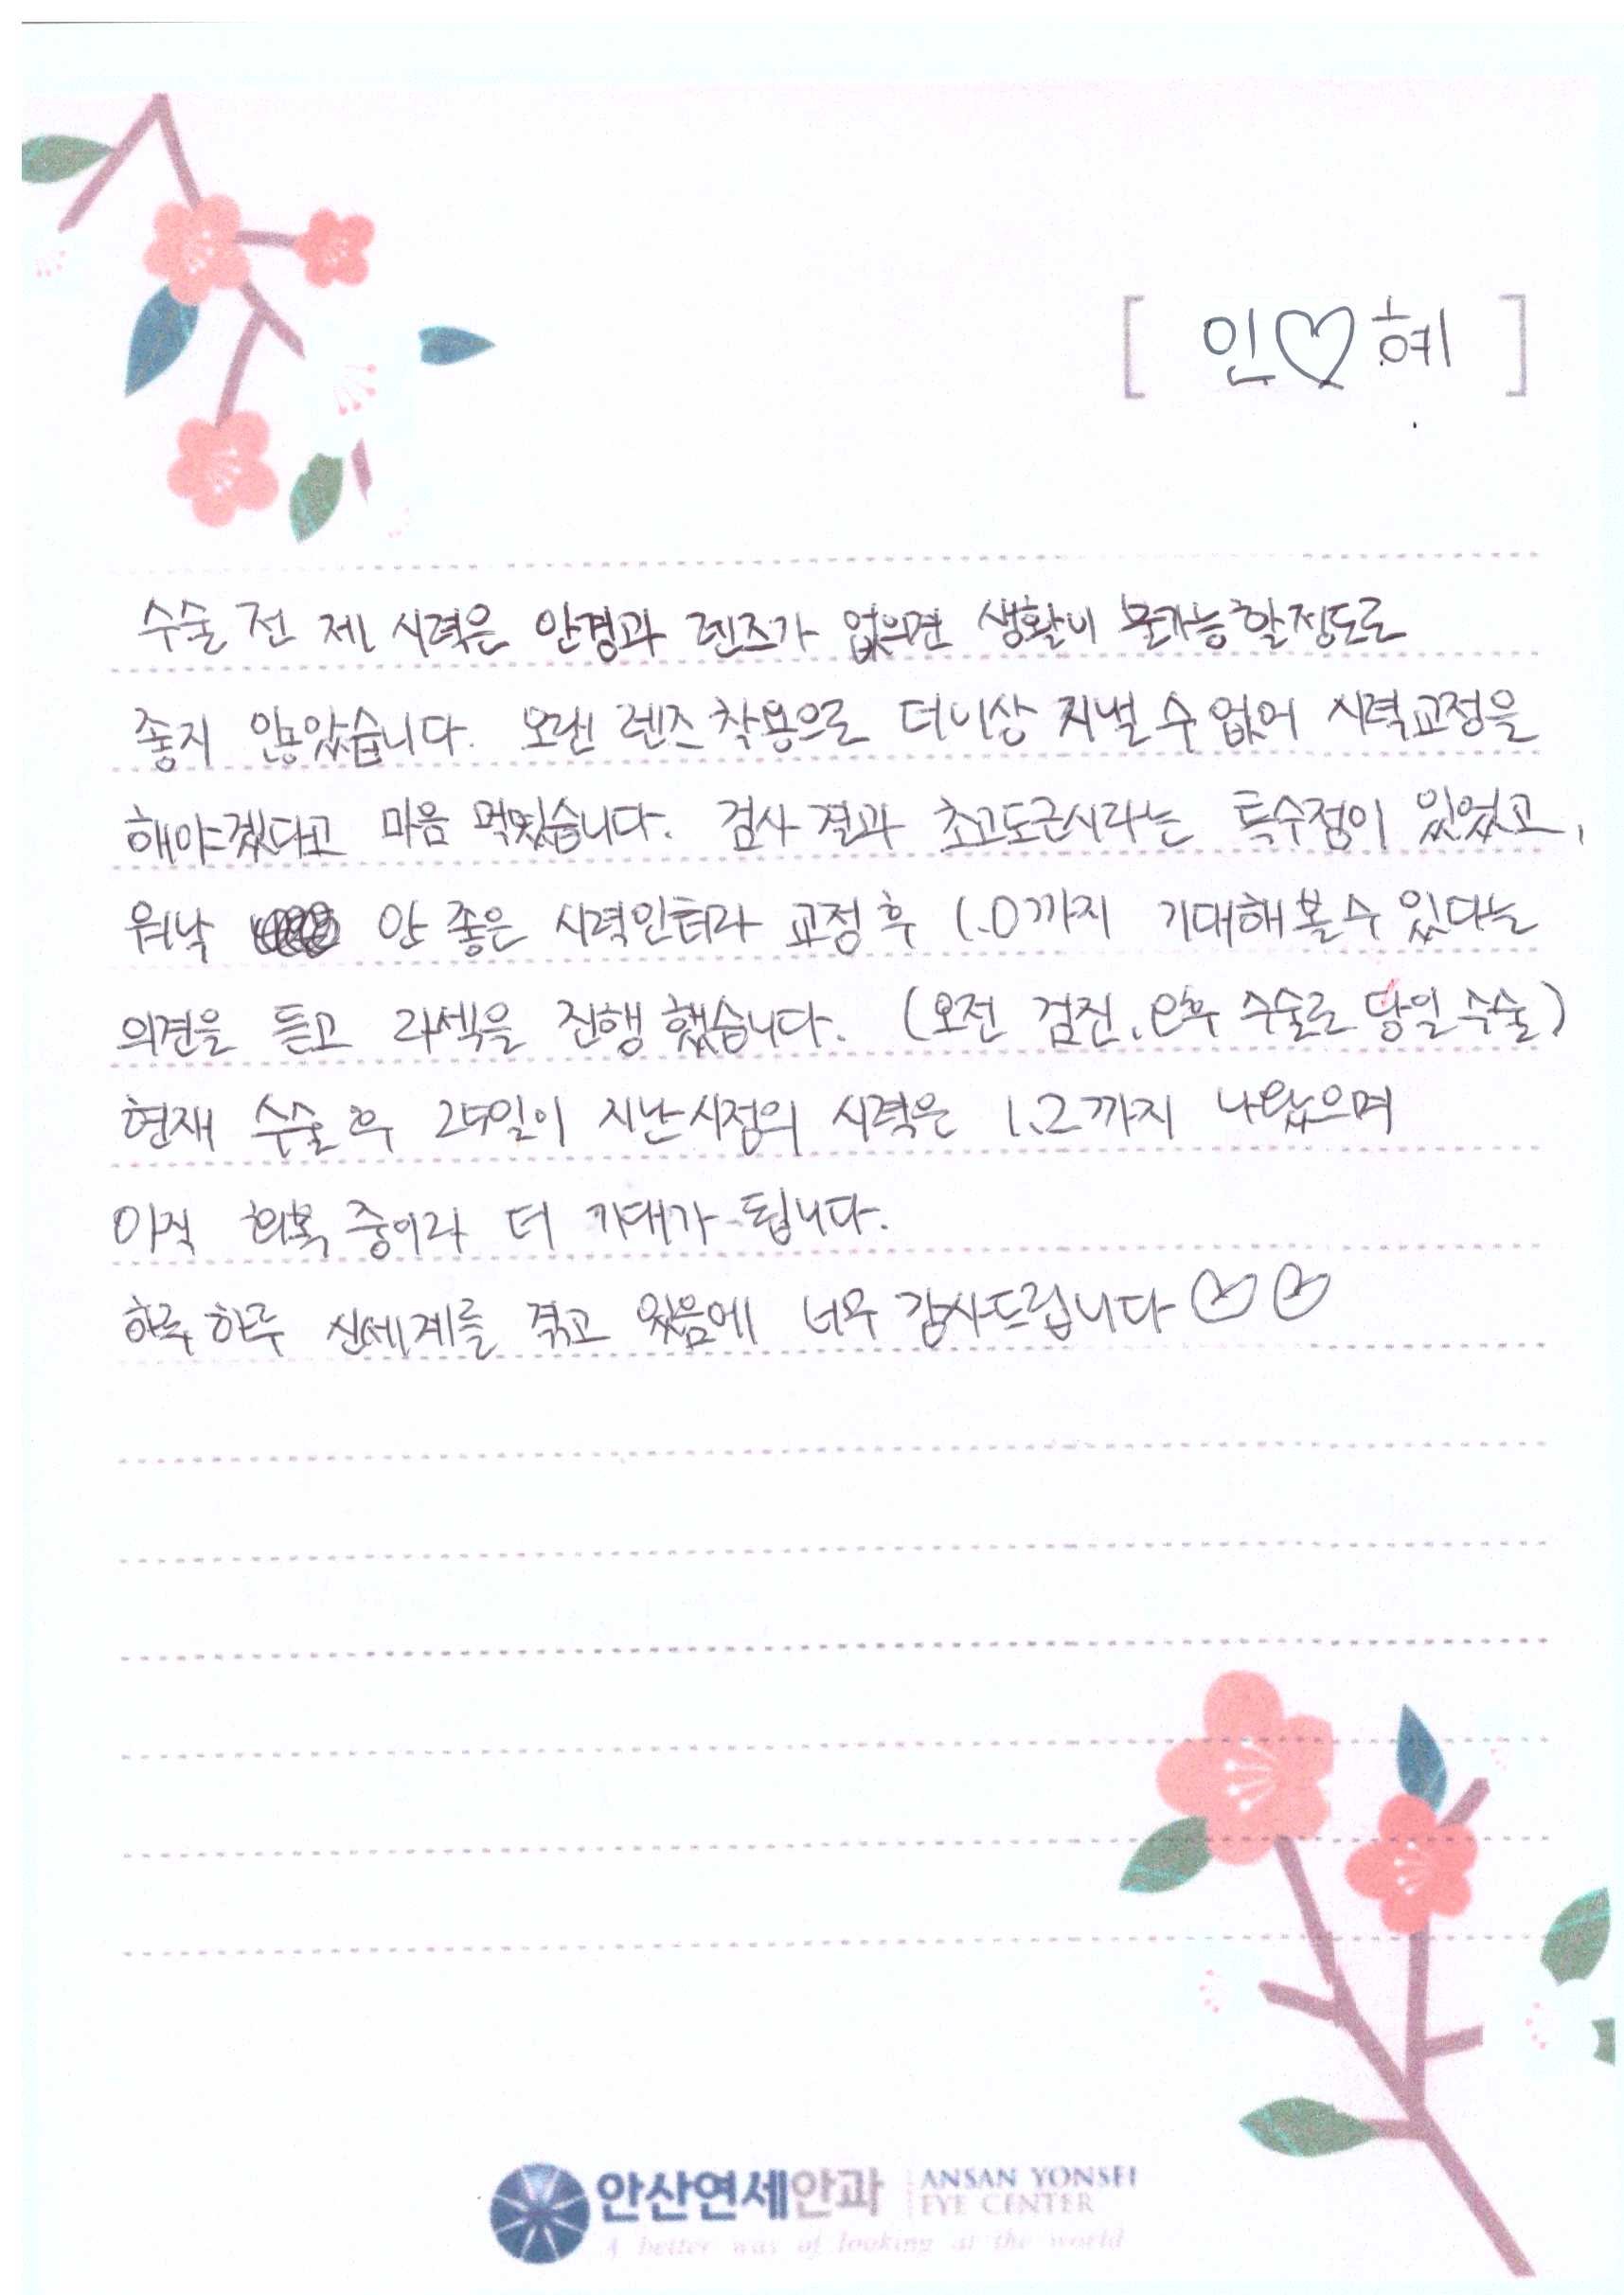 [ 인♡혜 ]
수술 전 제 시력은 안경과 렌즈가 없으면 생활이 불가능할정도로
좋지 않았습니다. 오랜 렌즈 착용으로 더이상 지낼 수 없어 시력교정을
해야겠다고 마음 먹었습니다. 검사 결과 초고도근시라는 특수점이 있었고,
워낙 안 좋은 시력인터라 교정 후 1.0까지 기대해 볼 수 있다는
의견을 듣고 라섹을 진행했습니다. (오전 검진, 오후 수술로 당일 수술)
현재 수술 후 25일이 지난시점의 시력은 1.2까지 나왔으며
아직 회복 중이라 더 기대가 됩니다.
하루 하루 신세계를 겪고 있음에 너무 감사드립니다 ♡♡
안산연세안과 ANSAN YONSEI
EYE CENTER
A better way of looking at the world